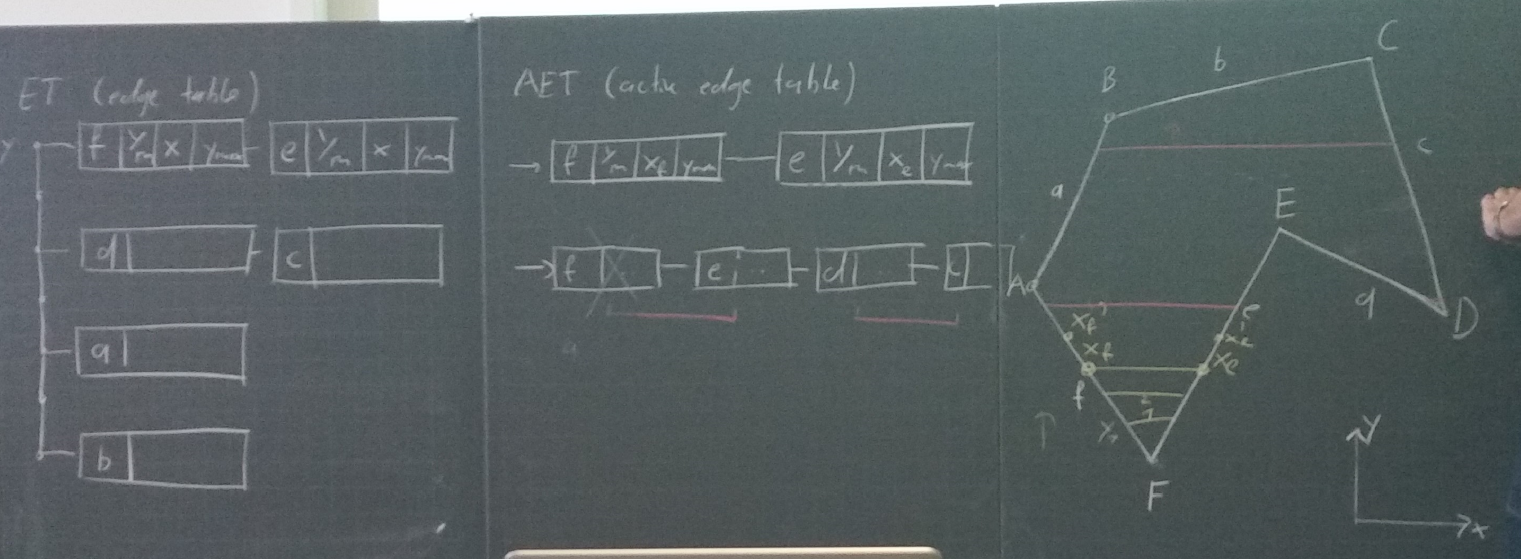 ET (edge table)
y
f 1/m x ymax e 1/m x ymax
d c
a
b
AET (active edge table)
f 1/m xf ymax e 1/m xe ymax
f e d c
B b C
a c
A E
e D
xf' xe'
xf xe
f
F
y
x